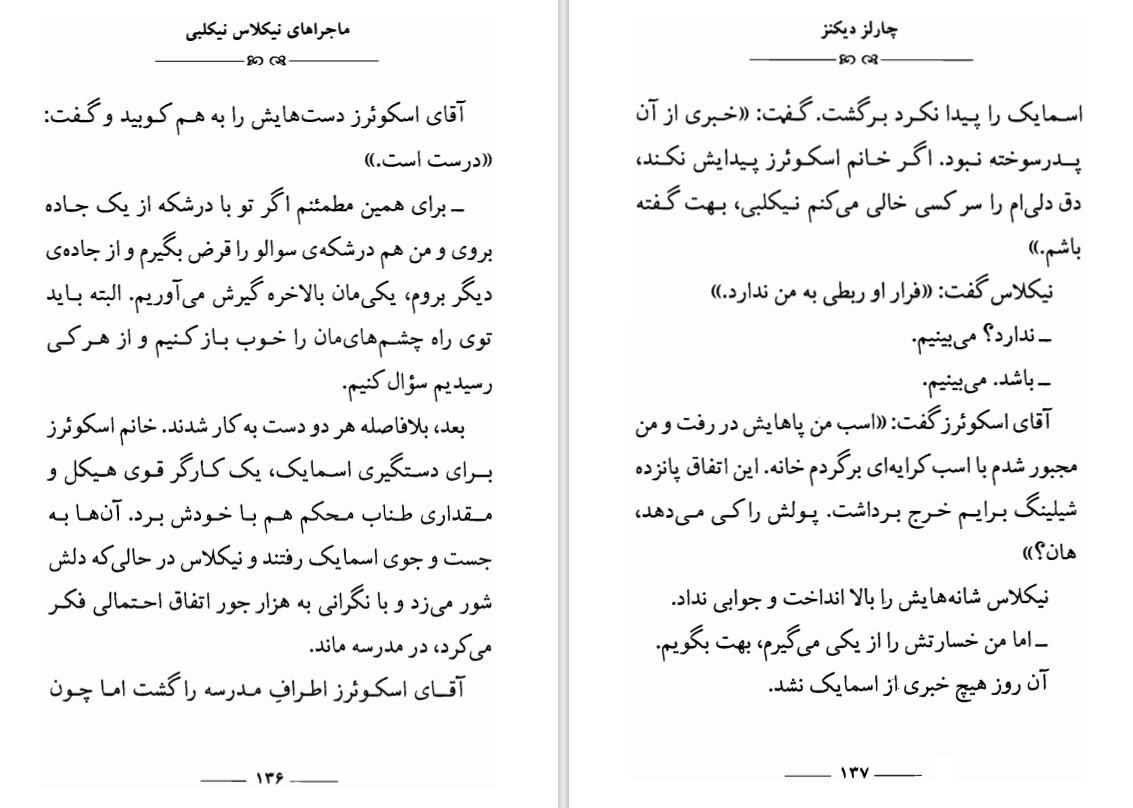 ماجراهای نیکلاس نیکلبی
آقای اسکوئرز دست‌هایش را به هم کوبید و گفت:
«درست است.»
ــ برای همین مطمئنم اگر تو با درشکه از یک جاده
بروی و من هم درشکه‌ی سوالو را قرض بگیرم و از جاده‌ی
دیگر بروم، یکی‌مان بالاخره گیرش می‌آوریم. البته باید
توی راه چشم‌های‌مان را خوب باز کنیم و از هر کی
رسیدیم سؤال کنیم.
بعد، بلافاصله هر دو دست به کار شدند. خانم اسکوئرز
برای دستگیری اسمایک، یک کارگر قوی هیکل و
مقداری طناب محکم هم با خودش برد. آن‌ها به
جست و جوی اسمایک رفتند و نیکلاس در حالی‌که دلش
شور می‌زد و با نگرانی به هزار جور اتفاق احتمالی فکر
می‌کرد، در مدرسه ماند.
آقای اسکوئرز اطرافِ مدرسه را گشت اما چون
۱۳۶
چارلز دیکنز
اسمایک را پیدا نکرد برگشت. گفت: «خبری از آن
پدرسوخته نبود. اگر خانم اسکوئرز پیدایش نکند،
دق دلی‌ام را سر کسی خالی می‌کنم نیکلبی، بهت گفته
باشم.»
نیکلاس گفت: «فرار او ربطی به من ندارد.»
ــ ندارد؟ می‌بینیم.
ــ باشد. می‌بینیم.
آقای اسکوئرز گفت: «اسب من پاهایش در رفت و من
مجبور شدم با اسب کرایه‌ای برگردم خانه. این اتفاق پانزده
شیلینگ برایم خرج برداشت. پولش را کی می‌دهد،
هان؟»
نیکلاس شانه‌هایش را بالا انداخت و جوابی نداد.
ــ اما من خسارتش را از یکی می‌گیرم، بهت بگویم.
آن روز هیچ خبری از اسمایک نشد.
۱۳۷